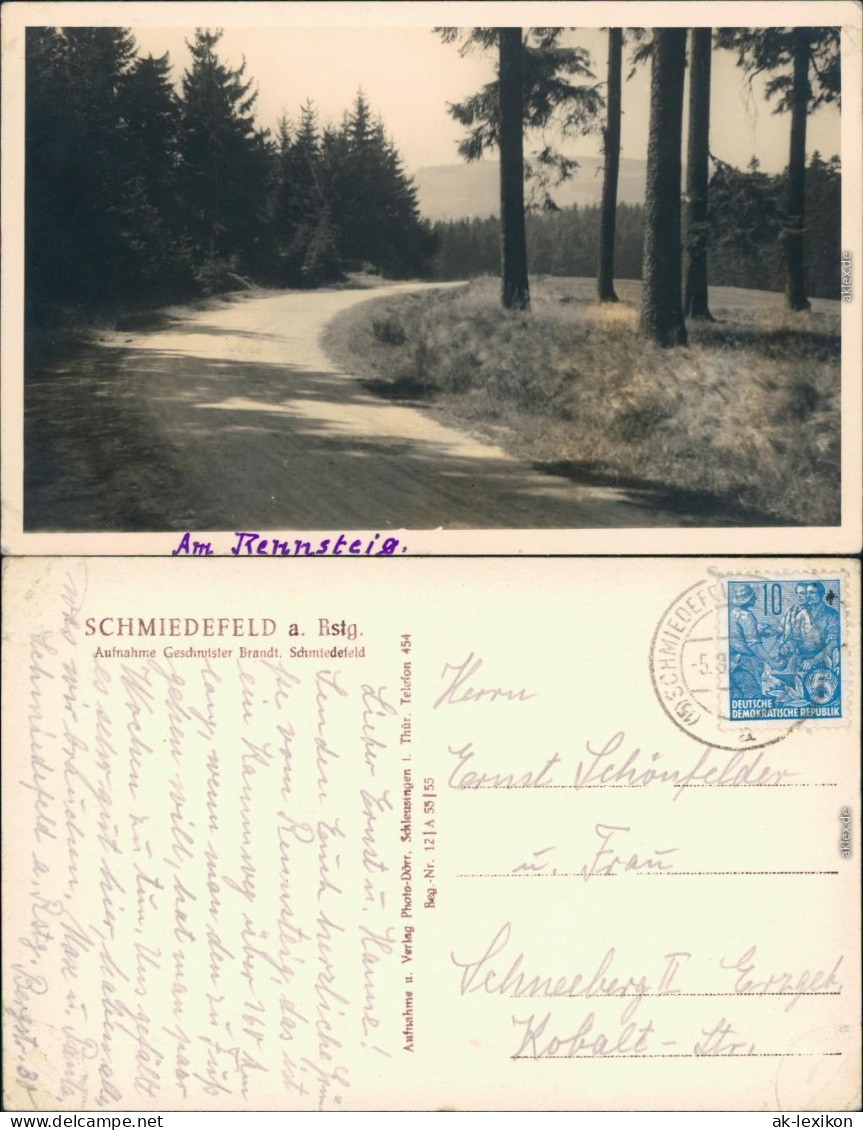 Am Rennsteig.
SCHMIEDEFELD a. Rstg.
Aufnahme Geschwister Brandt, Schmiedefeld
Lieber Ernst u. Hanne!
Senden Euch herzliche Grü-
ße vom Rennsteig, das ist
ein Kammweg über 160 km
lang, wenn man den zu Fuß
gehen will, hat man paar
Wochen zu tun. Uns gefällt
es sehr gut hier, haben alles
was wir brauchen. Max u. Paula,
Schmiedefeld a. Rstg. Bergstr. 31
Aufnahme u. Verlag Photo-Dörr, Schleusingen i. Thür. Telefon 454
Beg.-Nr. 12|A 55|55
(15) SCHMIEDEFELD
-5.8
a
10
5
DEUTSCHE
DEMOKRATISCHE REPUBLIK
Herrn
Ernst Schönfelder
u. Frau
Schneeberg II Erzgeb.
Kobalt-Str.
aklex.de
aklex.de
ak-lexikon